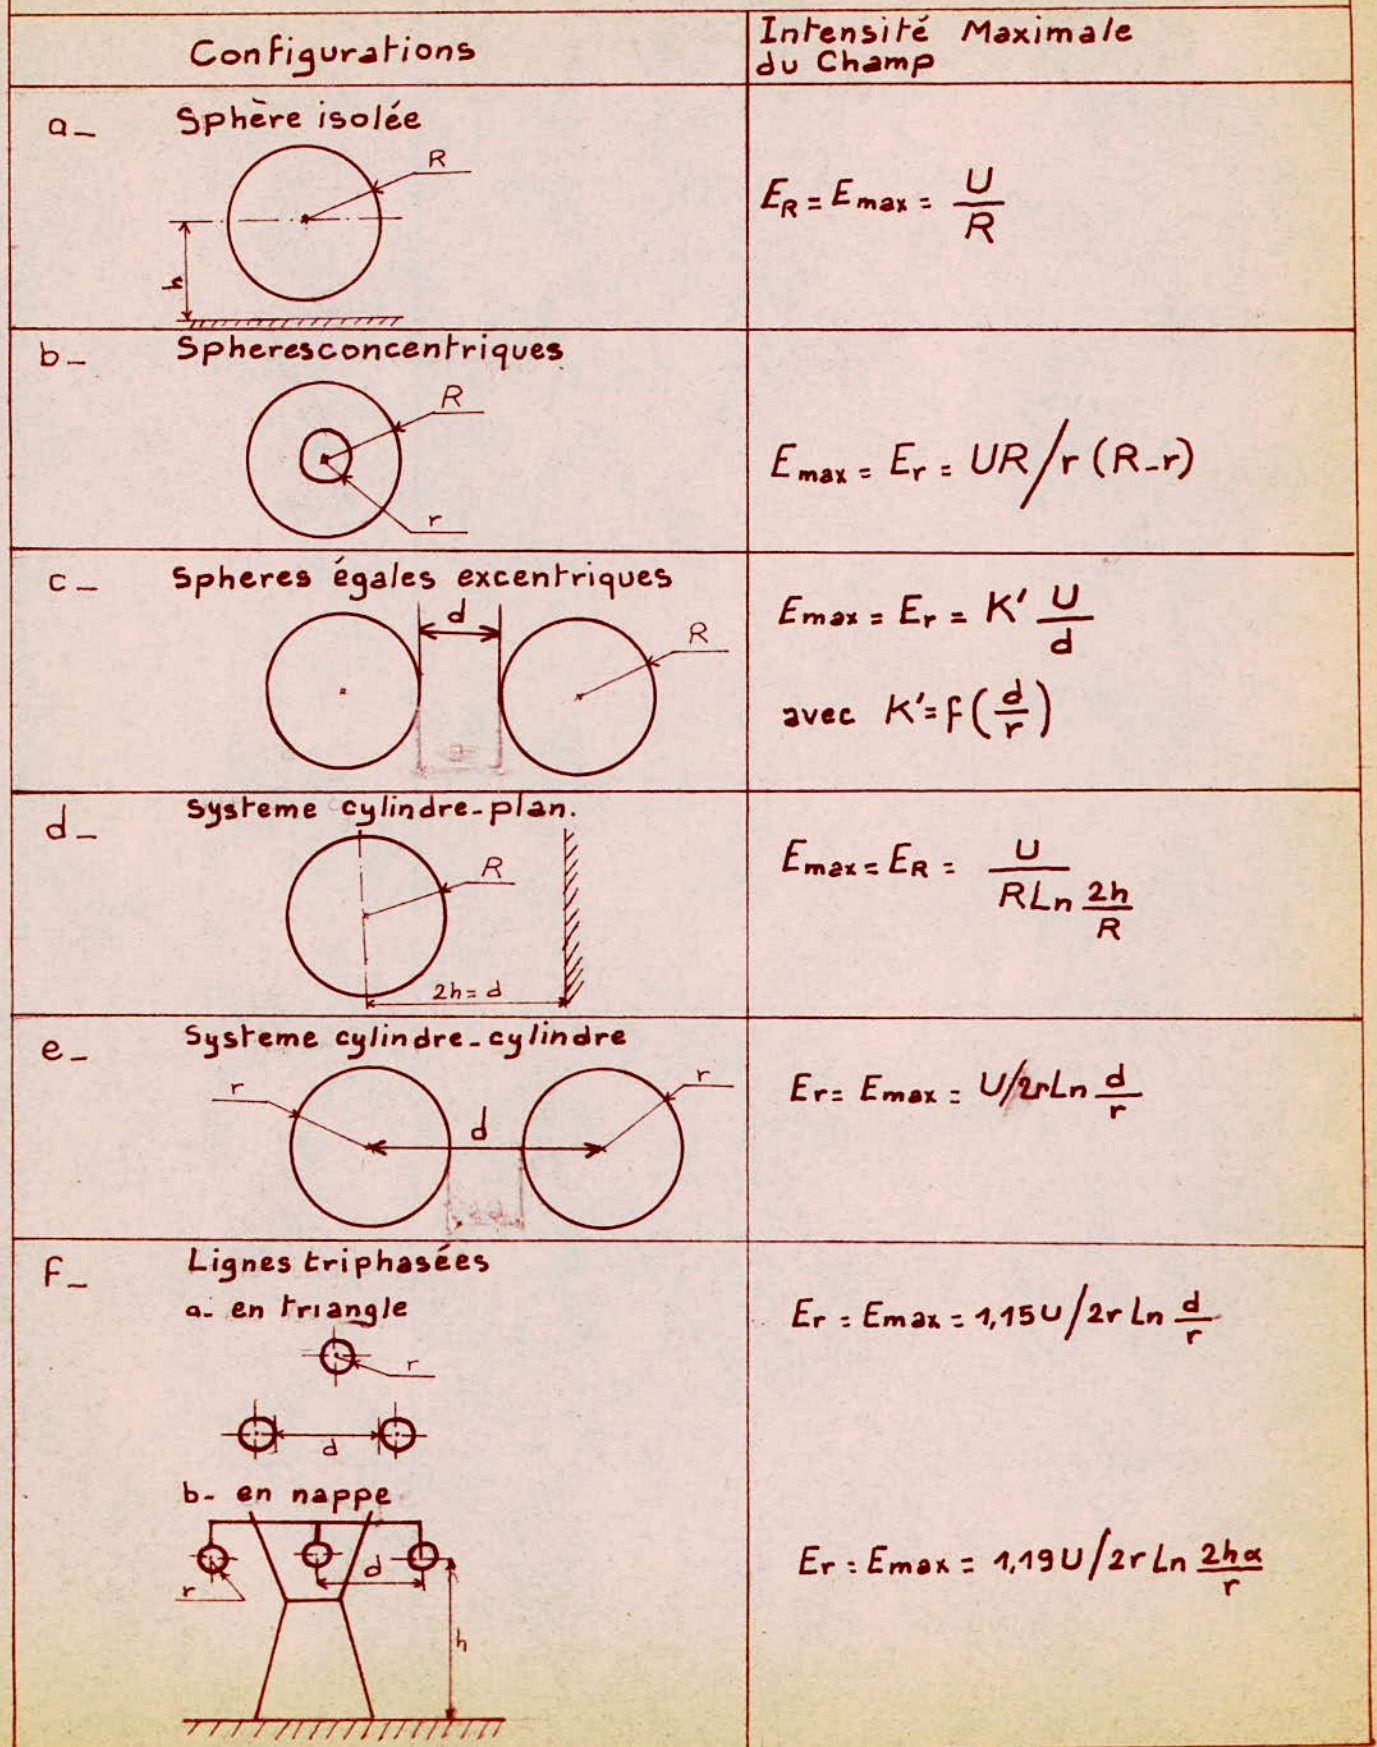 Configurations
Intensité Maximale
du Champ
a_ Sphère isolée
R
h
E_R = E_max = U/R
b_ Spheresconcentriques
R
r
E_max = E_r = UR/r (R-r)
c_ Spheres égales excentriques
d
R
E_max = E_r = K' U/d
avec K'= f(d/r)
d_ Systeme cylindre-plan.
R
2h = d
E_max = E_R = U/(R Ln 2h/R)
e_ Systeme cylindre-cylindre
r
d
r
Er = E_max = U/2r Ln d/r
f_ Lignes triphasées
a- en triangle
r
d
Er = E_max = 1,15 U/2r Ln d/r
b- en nappe
r
d
h
Er = E_max = 1,19 U/2r Ln 2hα/r